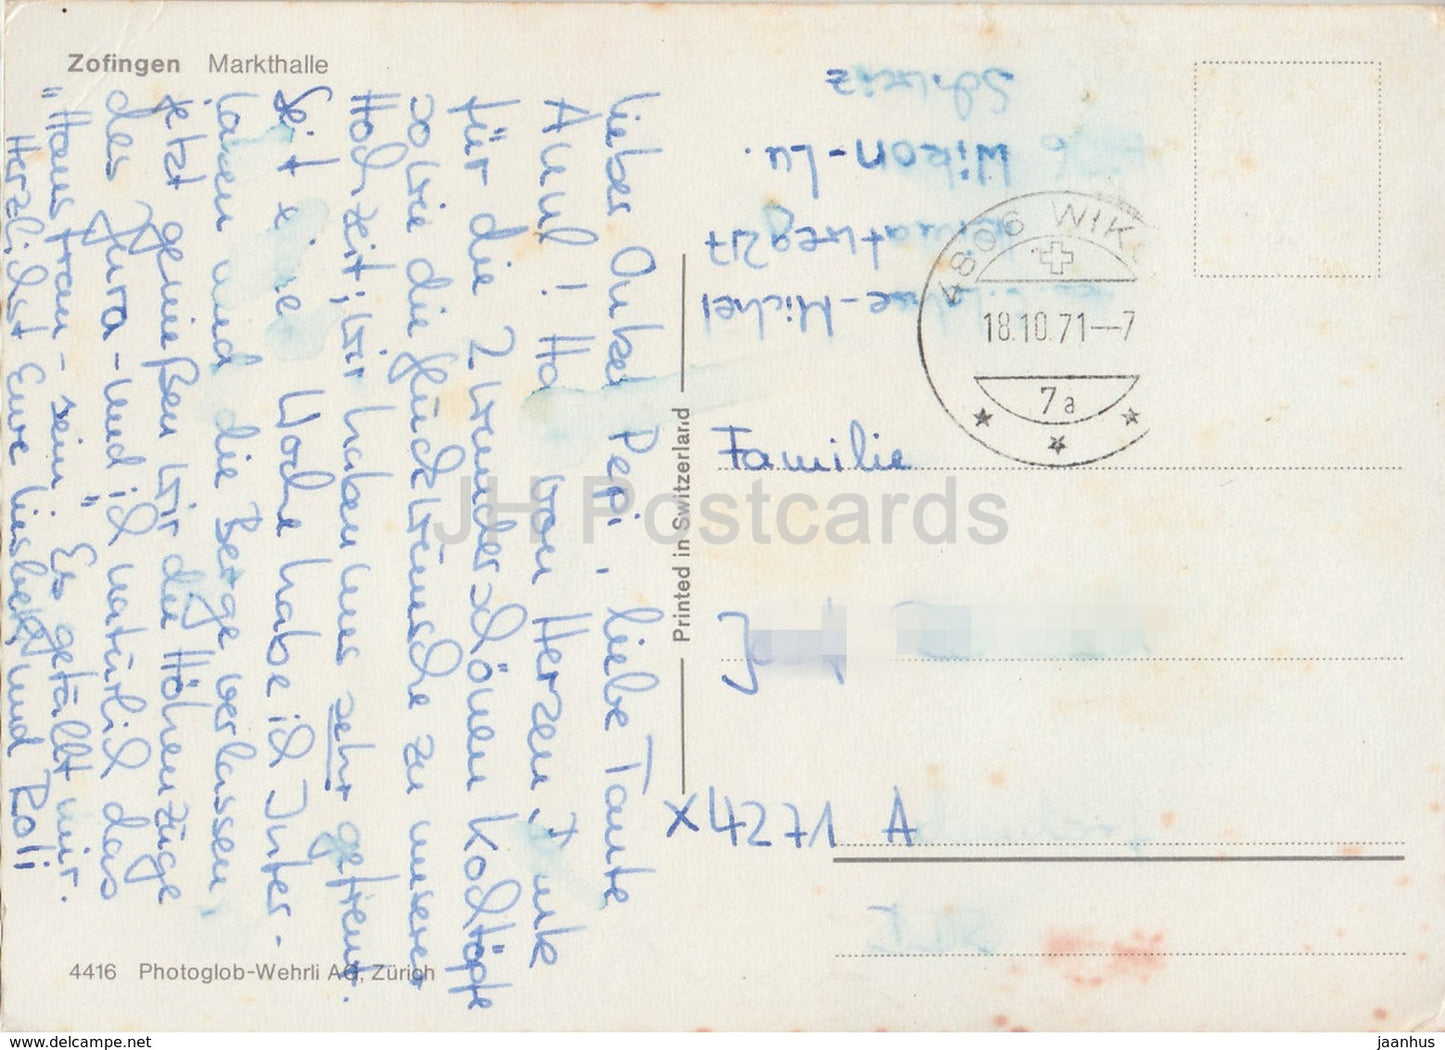 Zofingen Markthalle
Lieber Onkel Pepi, liebe Tante
Anni! Ha von Herzen Dank
für die 2 wunderschönen Kochtöpfe
sowie die Glückwünsche zu unserer
Hochzeit; wir haben uns sehr gefreut.
Seit eine Woche habe ich Inter-
laken und die Berge verlassen,
jetzt genießen wir die Höhenzüge
des Jura - und ich natürlich das
"Hausfrau - sein". Es gefällt mir.
Herzlichst Eure Liesbeth und Roli
4416 Photoglob-Wehrli AG, Zürich
Printed in Switzerland
-Michel
weg 217
6 Wikon-Lu.
Schweiz
4806 WIK
18.10.71--7
7a
Familie
x4271 A
JH Postcards
www.delcampe.net
jaanhus